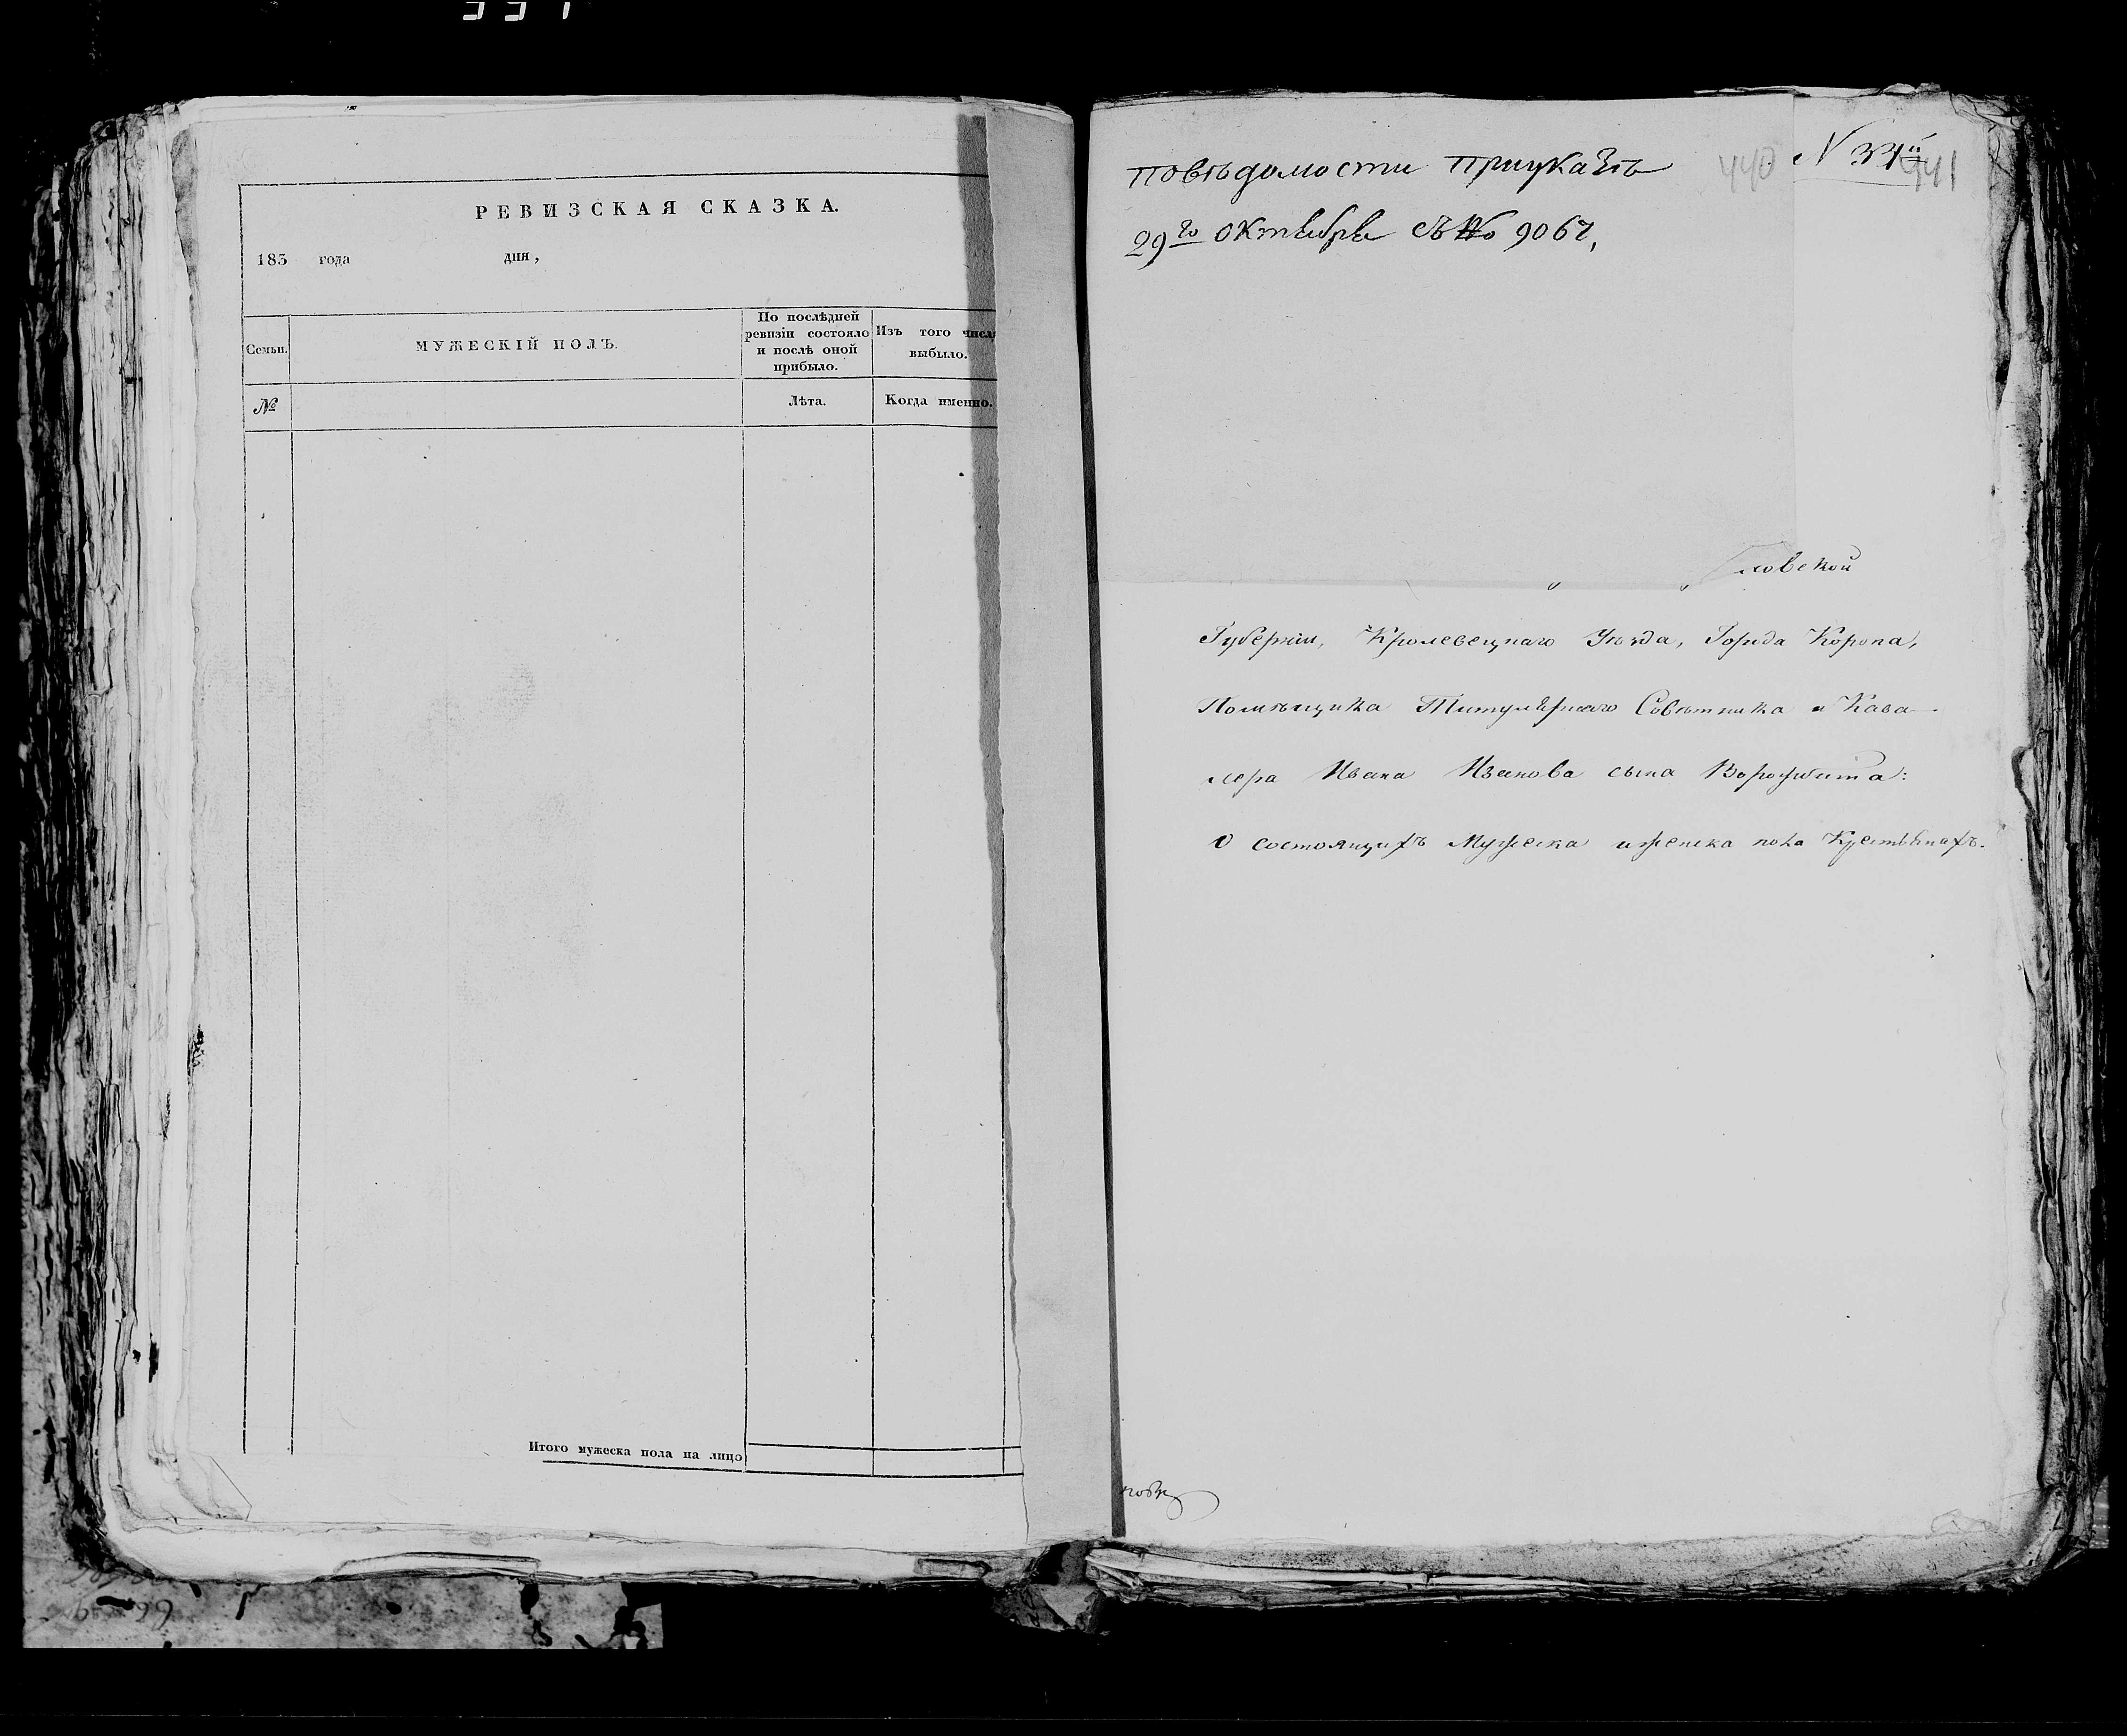 РЕВИЗСКАЯ СКАЗКА.
183 года дня,
Семьи.
МУЖЕСКІЙ ПОЛЪ.
По послѣдней
ревизіи состояло
и послѣ оной
прибыло.
Изъ того числа
выбыло.
№
Лѣта.
Когда именно.
Итого мужеска пола на лицо
повѣдомости приуказѣ
440
N 331й
441
29го октября съ No 9067,
ловской
Губерніи, Кролевецкаго Уѣзда, Города Коропа,
Помѣщика Титулярнаго Совѣтника и Кава
лера Ивана Иванова сына
О состоящихъ Мужеска и женска пола Крестьянахъ.